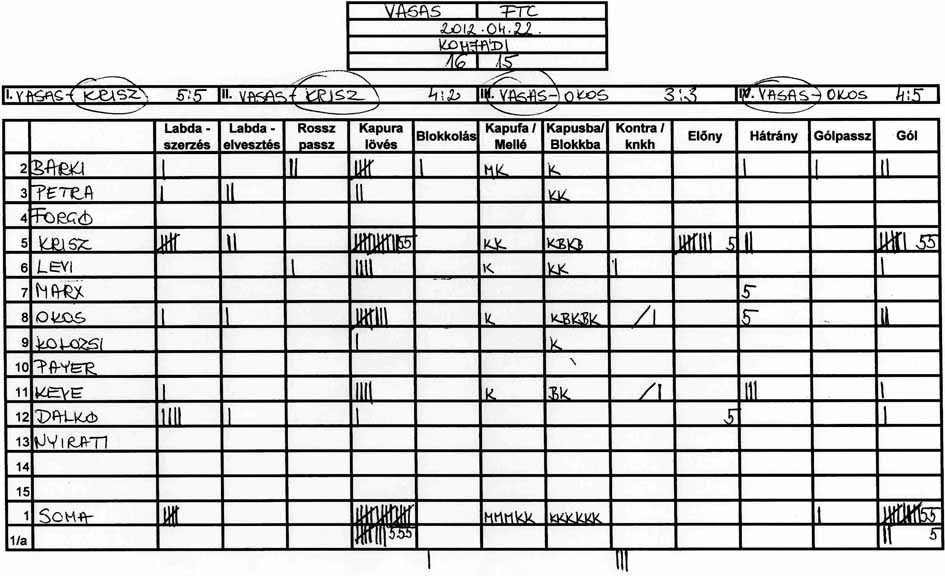 VASAS FTC
2012.04.22.
KOMJÁDI
16 15
I. VASAS - KRISZ 5:5 II. VASAS - KRISZ 4:2 III. VASAS - OKOS 3:3 IV. VASAS - OKOS 4:5
Labda - szerzés Labda - elvesztés Rossz passz Kapura lövés Blokkolás Kapufa / Mellé Kapusba/ Blokkba Kontra / knkh Előny Hátrány Gólpassz Gól
2 BARKI | || |||| | MK K | | ||
3 PETRA | || || KK
4 FORGO
5 KRISZ |||| || 55 KK KBKB 5 || 55
6 LEVI | |||| K KK | |
7 MARX 5
8 OKOS | | K KBKBK / | 5 ||
9 KOLOZSI | K
10 PAYER
11 KEVE | |||| K BK / | ||| |
12 DALKO |||| | | 5 |
13 NYIRATI
14
15
1 SOMA MMMKK KKKKKK | 55
1/a 555 || 5
| |||